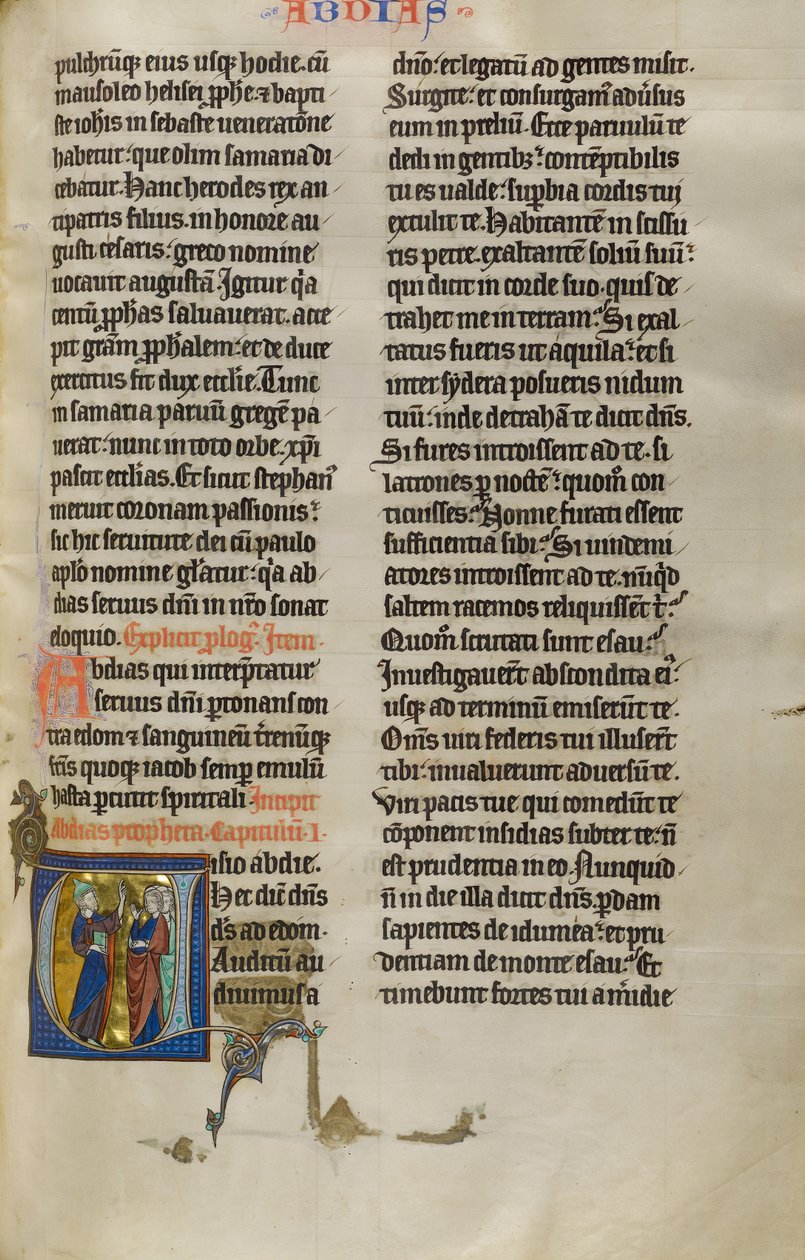 ABDIAS
pulchrūqꝫ eius usqꝫ hodie. cū
mausoleo helisei ꝓph̄e ⁊ bapti
ste ioh̄is in sebaste ueneratōne
habetur: que olim samaria di
cebatur. Hanc herodes rex an
tipatris filius. in honore au
gusti cesaris: greco nomine
uocauit augustā. Igitur q̇a
centū ꝓph̄as saluauerat. acce
pit grām ꝓph̄alem: et de duce
exercitus fit dux eccl̄ie. Tunc
in samaria paruū gregē pa
uerat: nunc in toto orbe. xp̄i
pascit eccl̄ias. Et sicut stephanꝰ
meruit coronam passionis:
sic hic seruitute dei cū paulo
apl̄o nomine gl̄atur: q̇a ab
dias seruus dn̄i in nr̄o sonat
eloquio. Explicit ꝓlogꝰ. Item.
Abdias qui interp̄tatur
seruus dn̄i ꝑtonans con
tra edom ⁊ sanguineū t̄renūqꝫ
fr̄is quoqꝫ iacob semꝑ emulū
hasta ꝑcutit spiritali. Incipit
Abdias propheta. Capitulū. I.
Uisio abdie.
Hec dic̄ dn̄s
ds̄ ad edom.
Auditū au
diuimus a
dn̄o: et legatū ad gentes misit.
Surgite: et consurgamꝰ aduersus
eum in preliū. Ecce paruulū te
dedi in gentibꝫ: contēptibilis
tu es ualde: suꝑbia cordis tui
extulit te. Habitantē in scissu
ris petre. exaltantē soliū suū:
qui dicit in corde suo. quis de
trahet me in terram? Si exal
tatus fueris ut aquila: et si
inter sydera posueris nidum
tuū: inde detrahā te dicit dn̄s.
Si fures introissent ad te. si
latrones ꝑ noctē: quom̄ con
ticuisses? Nonne furati essent
sufficientia sibi? Si uindemi
atores introissent ad te. nūq̇d
saltem racemos reliquissēt t̄?
Quom̄ scrutati sunt esau?
Inuestigauer̄t abscondita eiꝰ?
usqꝫ ad terminū emiserūt te.
Om̄s uiri federis tui illuser̄t
tibi: inualuerunt aduersū te.
Viri pacis tue qui comedūt te
cōponent insidias subter te: n̄
est prudentia in eo. Nunquid
n̄ in die illa dicit dn̄s. ꝑdam
sapientes de idumea: et pru
dentiam de monte esau? Et
timebunt fortes tui a m̄idie